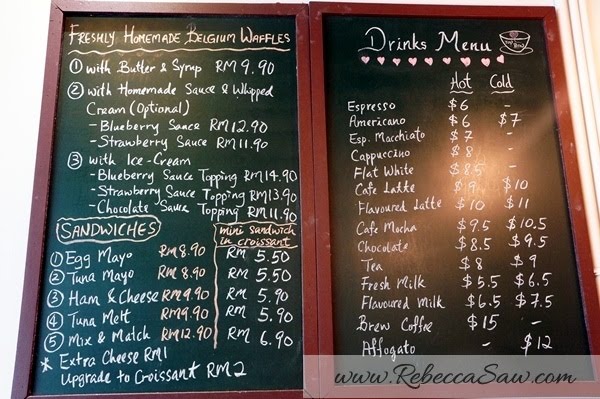 FRESHLY HOMEMADE BELGIUM WAFFLES
① with Butter & Syrup RM 9.90
② with Homemade Sauce & Whipped
Cream (Optional)
- Blueberry Sauce RM 12.90
- Strawberry Sauce RM 11.90
③ with Ice-Cream
- Blueberry Sauce Topping RM 14.90
- Strawberry Sauce Topping RM 13.90
- Chocolate Sauce Topping RM 11.90
SANDWICHES
mini sandwich
in croissant
① Egg Mayo RM 8.90 RM 5.50
② Tuna Mayo RM 8.90 RM 5.50
③ Ham & Cheese RM 9.90 RM 5.90
④ Tuna Melt RM 9.90 RM 5.90
⑤ Mix & Match RM 12.90 RM 6.90
* Extra Cheese RM1
Upgrade to Croissant RM 2
Drinks Menu
Hot Cold
Espresso $6 -
Americano $6 $7
Esp. Macchiato $7 -
Cappuccino $8 -
Flat White $8.5 -
Cafe Latte $9 $10
Flavoured Latte $10 $11
Cafe Mocha $9.5 $10.5
Chocolate $8.5 $9.5
Tea $8 $9
Fresh Milk $5.5 $6.5
Flavoured Milk $6.5 $7.5
Brew Coffee $15 -
Affogato - $12
www.RebeccaSaw.com